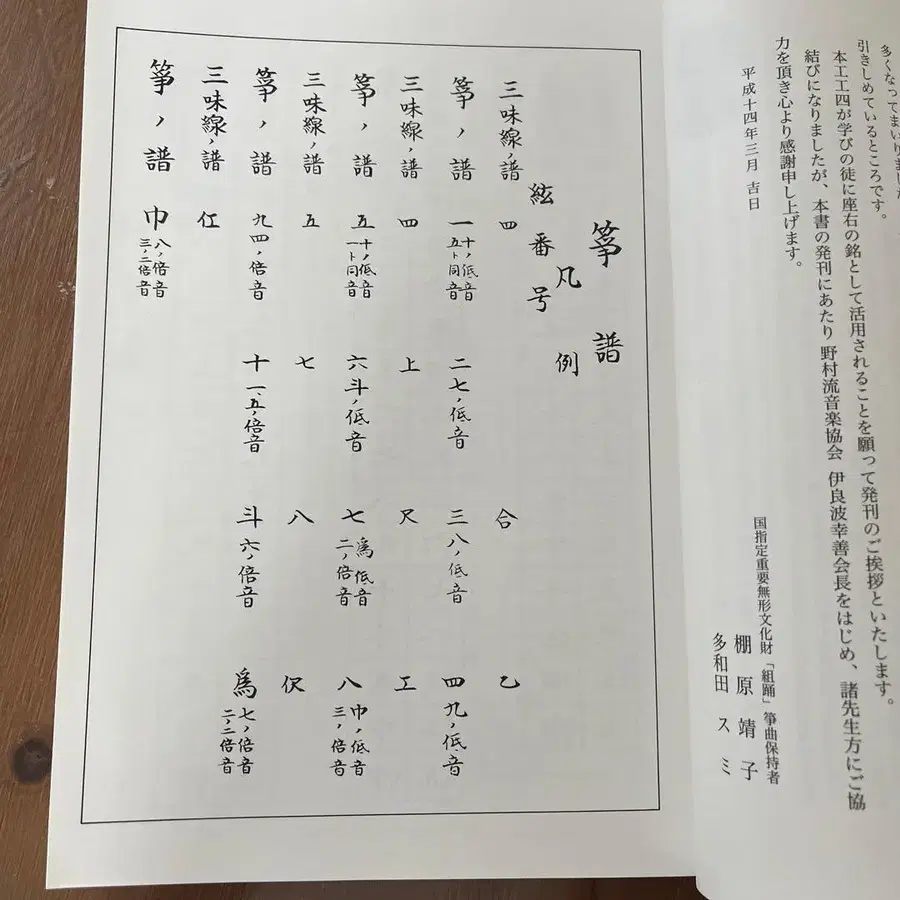 多くなってまいりました
引きしめているところです。
本工工四が学びの徒に座右の銘として活用されることを願って発刊のご挨拶といたします。
結びになりましたが、本書の発刊にあたり 野村流音楽協会 伊良波幸善会長をはじめ、諸先生方にご協
力を頂き心より感謝申し上げます。
平成十四年三月 吉日
国指定重要無形文化財「組踊」箏曲保持者
棚原靖子
多和田スミ
箏譜
凡例
絃番号
三味線ノ譜 四 合 乙
箏ノ譜 一 十ノ低音 五ト同音 二 七ノ低音 三 八ノ低音 四 九ノ低音
三味線ノ譜 四 上 尺 工
箏ノ譜 五 十ノ低音 一ト同音 六 斗ノ低音 七 爲ノ低音 二ノ倍音 八 巾ノ低音 三ノ倍音
三味線ノ譜 五 七 八 伬
箏ノ譜 九 四ノ倍音 十 一、五ノ倍音 斗 六ノ倍音 爲 七ノ倍音 二ノ二倍音
三味線ノ譜 仜
箏ノ譜 巾 八ノ倍音 三ノ二倍音